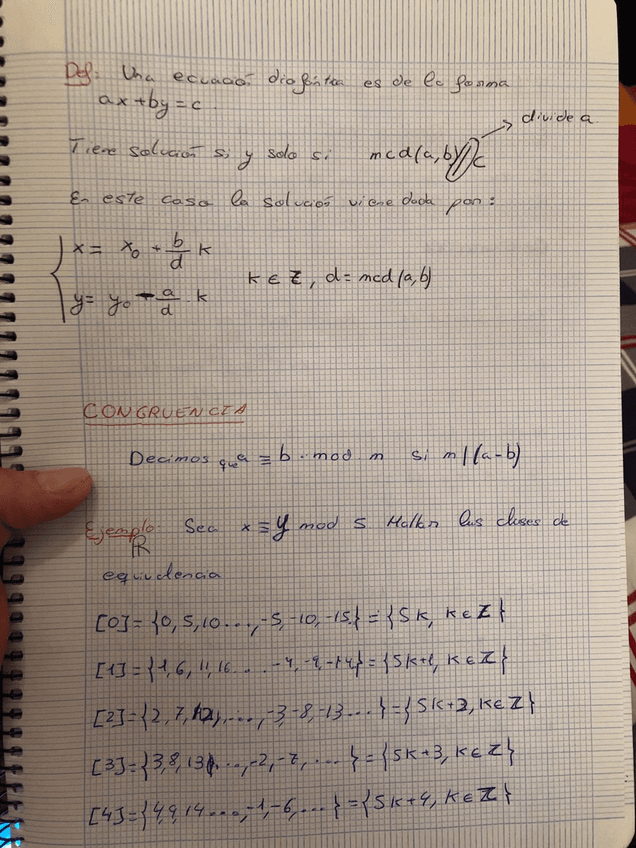 Def: Una ecuació diofántica es de la forma
ax+by=c.
divide a
Tiene solució si y solo si mcd(a,b)|c
En este caso la solució viene dada por:
x= x₀ + b/d k
y= y₀ - a/d · k
k ∈ Z, d= mcd(a,b)
CONGRUENCIA
Decimos que a ≡ b · mod m si m|(a-b)
Ejemplo: Sea x ≡ y mod 5 Hallar las clases de
R
equivalencia
[0]={0,5,10...,-5,-10,-15,}={5k, k∈Z}
[1]={1,6,11,16....-4,-9,-14}={5k+1, k∈Z}
[2]={2,7,12,...,-3,-8,-13...}={5k+2, k∈Z}
[3]={3,8,13,...,-2,-7,...}={5k+3, k∈Z}
[4]={4,9,14...,-1,-6,...}={5k+4, k∈Z}